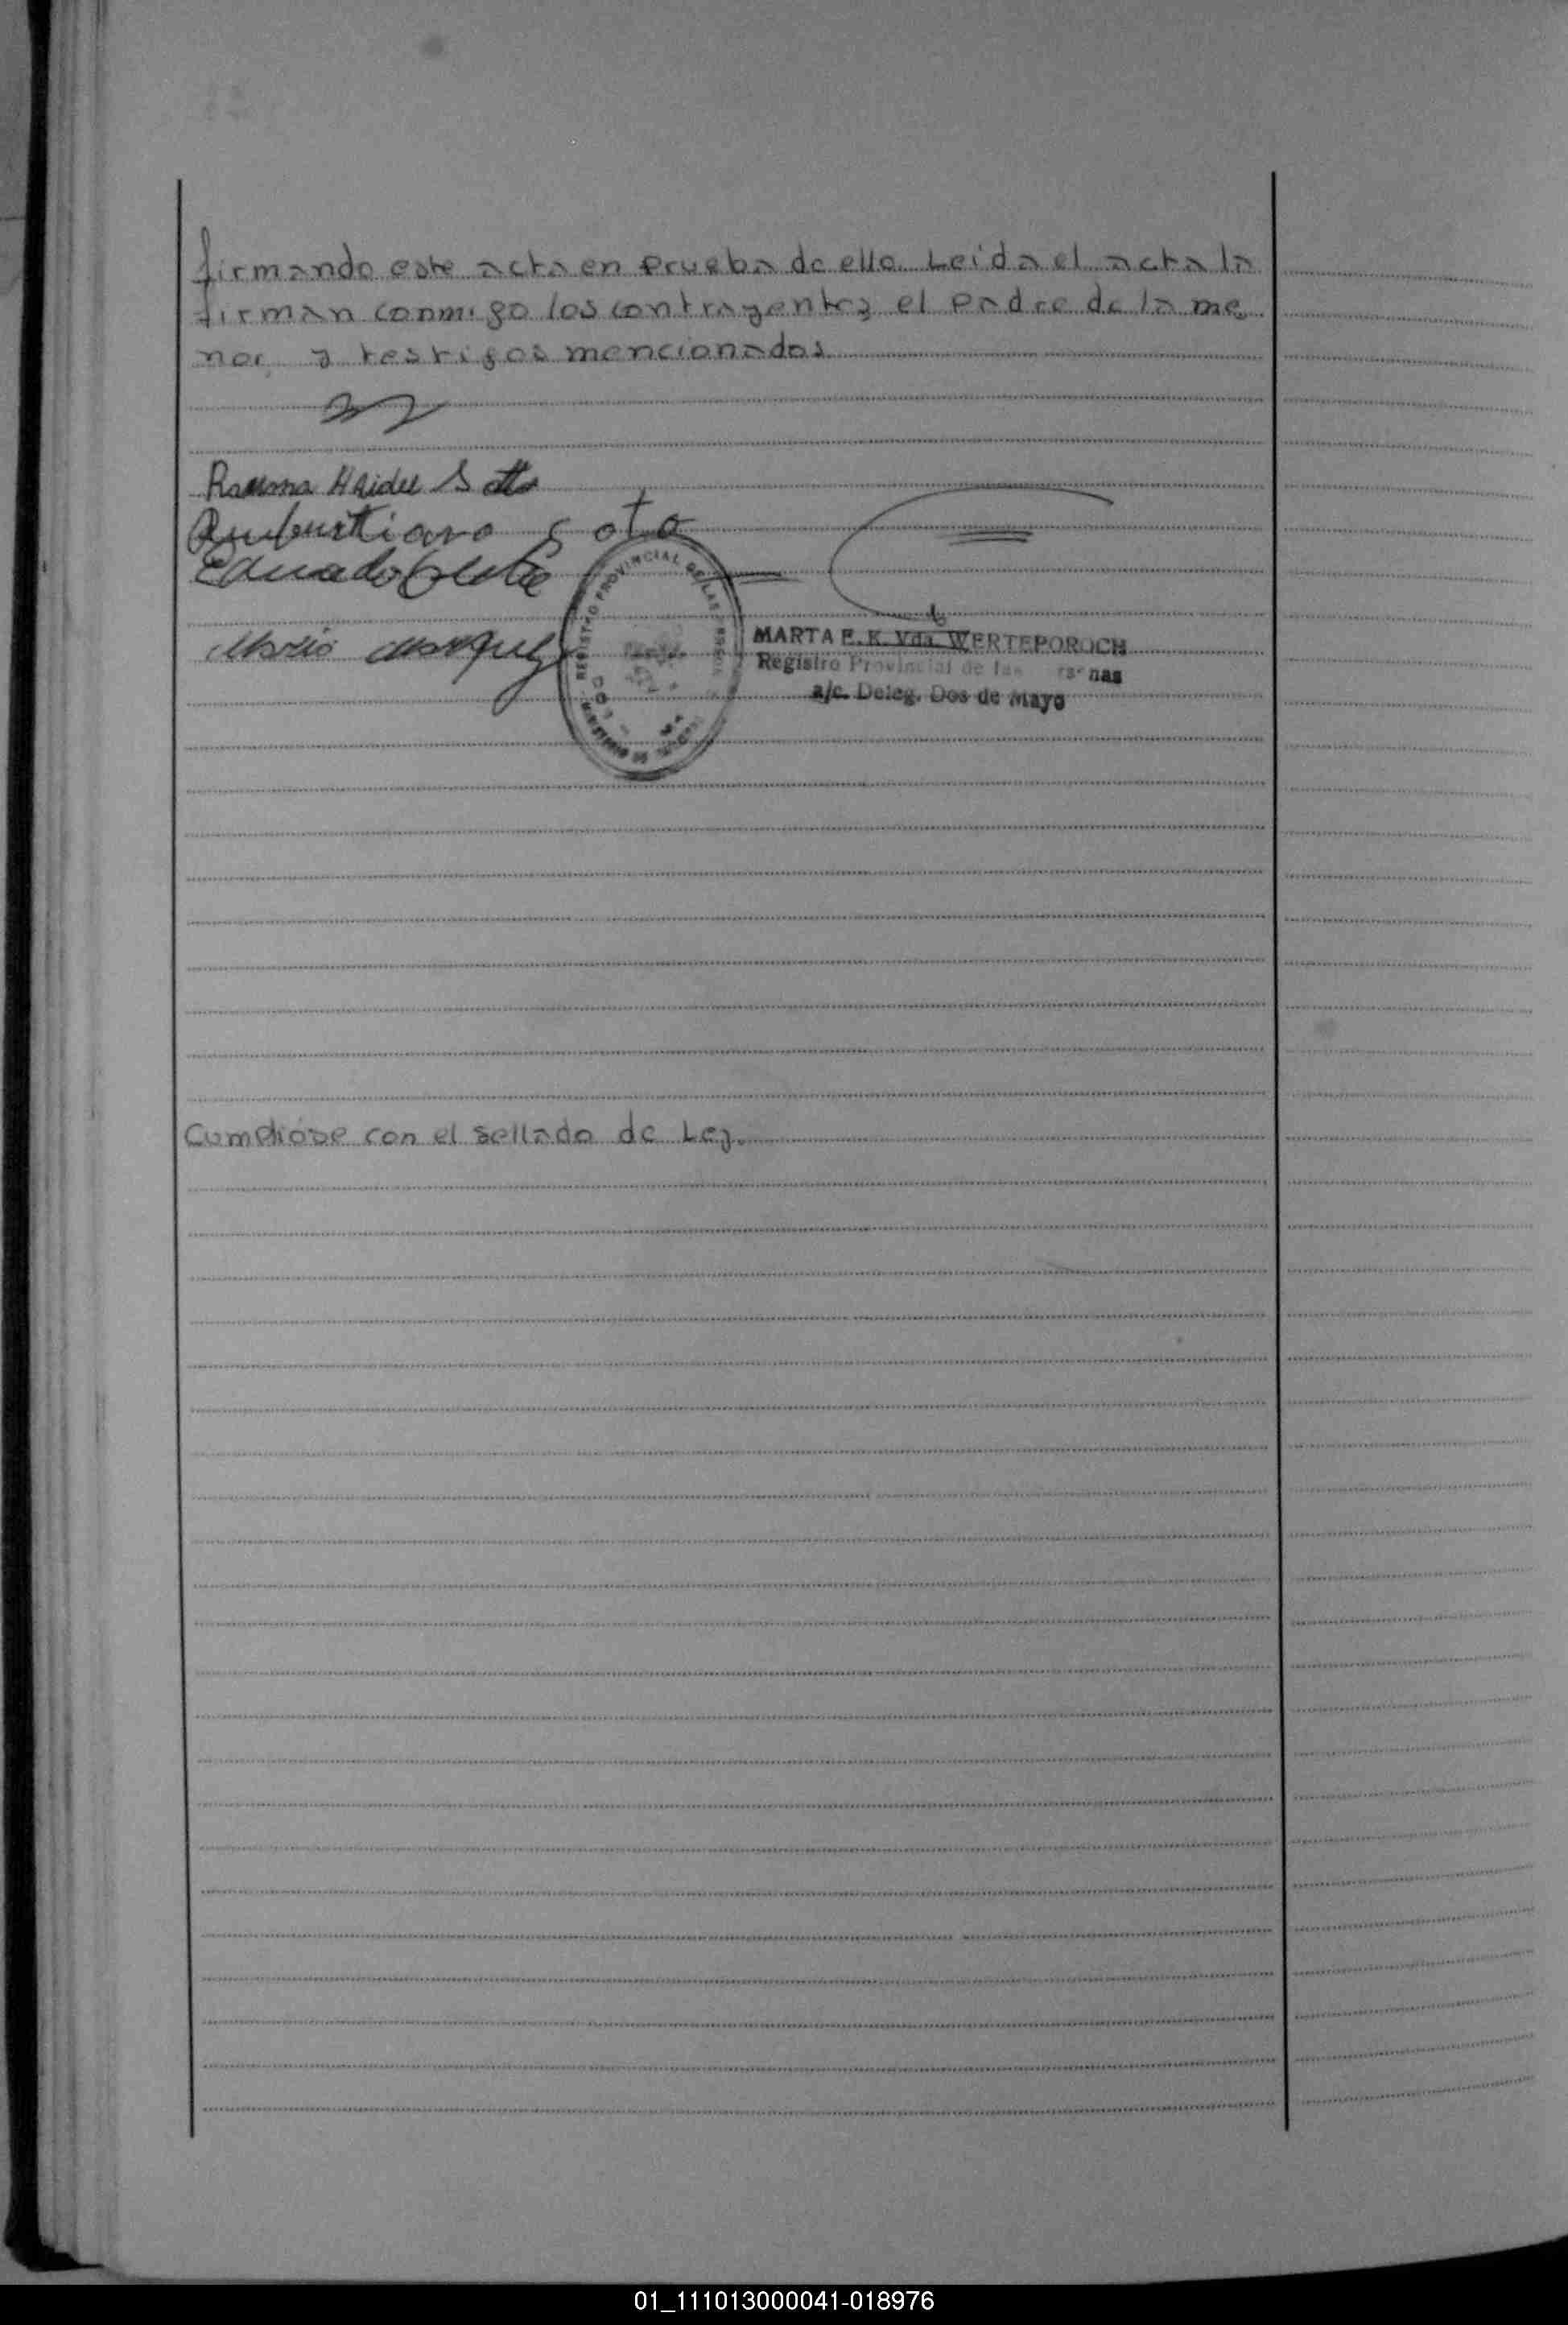 firmando este acta en prueba de ello. Leida el acta la
firman conmigo los contrayentes el padre de la me
nor y testigos mencionados
Ramona Haidee Sotto
Soto
Eduardo
Mario Marquez
REGISTRO PROVINCIAL DE LAS
MINISTERIO DE
MARTA E. K. Vda. WERTEPOROCH
Registro Provincial de las
a/c. Deleg. Dos de Mayo
Cumpliose con el sellado de Ley.
01_111013000041-018976